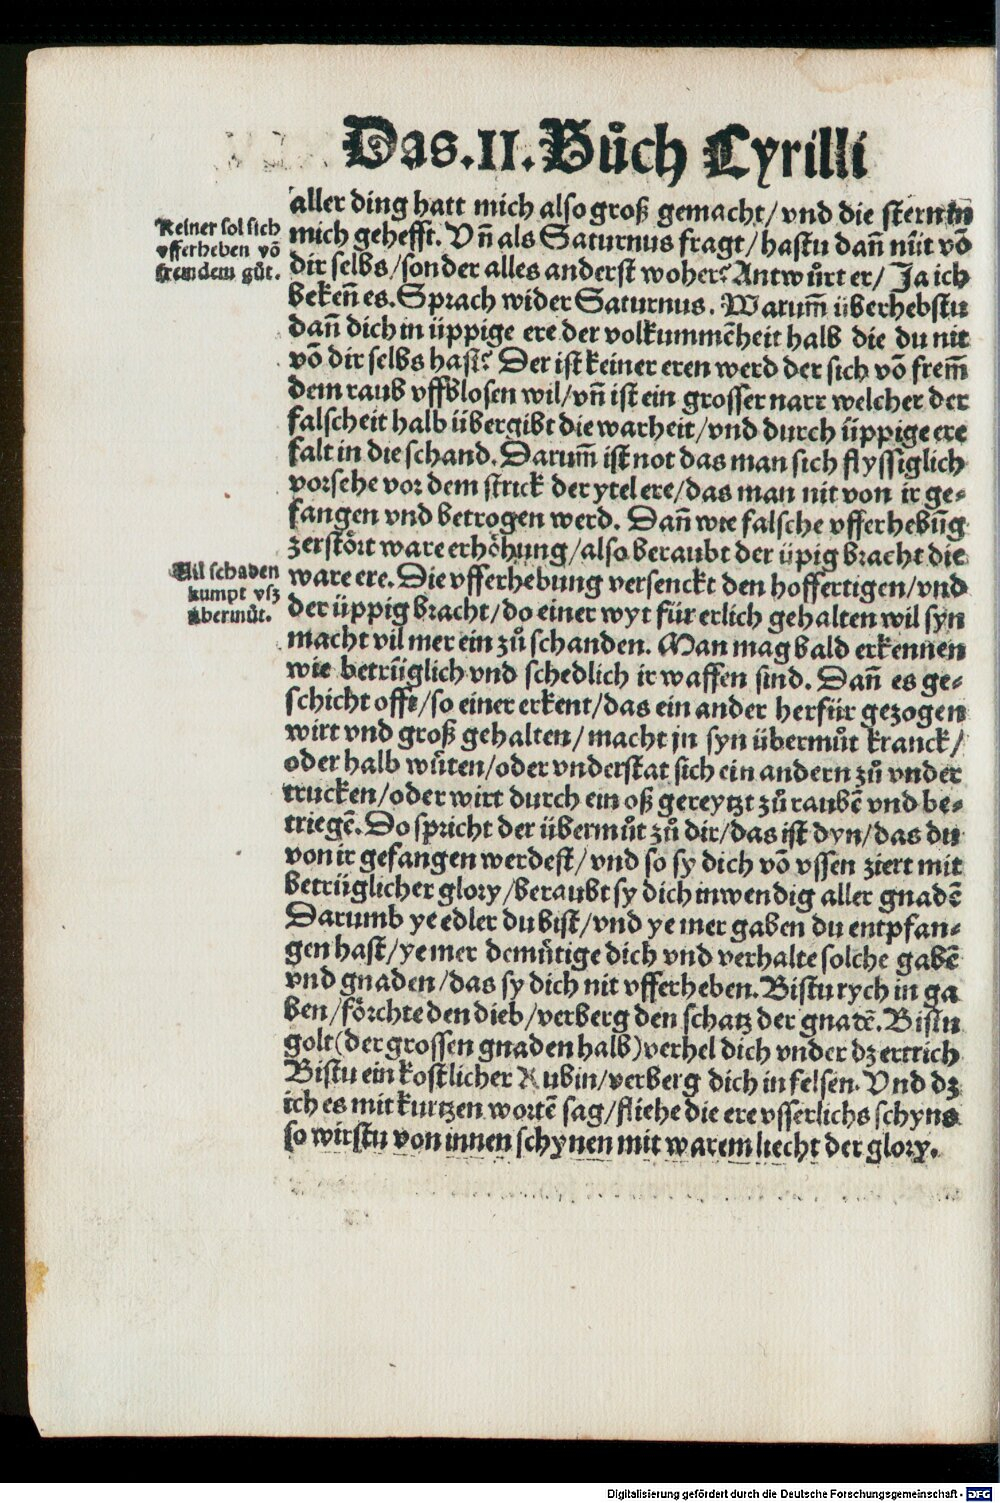 Das .II. Bůch Cyrilli
aller ding hatt mich also groß gemacht/ vnd die stern in
mich gehefft. Vñ als Saturnus fragt/ hastu dañ nüt võ
dir selbs/ sonder alles anderst woher? Antwůrt er/ Ja ich
bekeñ es. Sprach wider Saturnus. Warum̃ überhebstu
dañ dich in üppige ere der volkummẽheit halb die du nit
võ dir selbs hast? Der ist keiner eren werd der sich võ frem̃
dem raub vffblosen wil/ vñ ist ein grosser narr welcher der
falscheit halb übergibt die warheit/ vnd durch üppige ere
falt in die schand. Darum̃ ist not das man sich flyssiglich
vorsehe vor dem strick der ytel ere/ das man nit von ir ge⸗
fangen vnd betrogen werd. Dañ wie falsche vfferhebũg
zerstört ware erhöhung/ also beraubt der üpig bracht die
ware ere. Die vfferhebung versenckt den hoffertigen/ vnd
der üppig bracht/ do einer wyt für erlich gehalten wil syn
macht vil mer ein zů schanden. Man mag bald erkennen
wie betrüglich vnd schedlich ir waffen sind. Dañ es ge⸗
schicht offt/ so einer erkent/ das ein ander herfür gezogen
wirt vnd groß gehalten/ macht jn syn übermůt kranck/
oder halb wüten/ oder vnderstat sich ein andern zů vnder
trucken/ oder wirt durch ein oß gereytzt zů raubẽ vnd be⸗
triegẽ. Do spricht der übermůt zů dir/ das ist dyn/ das du
von ir gefangen werdest/ vnd so sy dich võ vssen ziert mit
betrüglicher glory/ beraubt sy dich inwendig aller gnadẽ
Darumb ye edler du bist/ vnd ye mer gaben du entpfan⸗
gen hast/ ye mer demütige dich vnd verhalte solche gabẽ
vnd gnaden/ das sy dich nit vfferheben. Bistu rych in ga
ben/ förchte den dieb/ verberg den schatz der gnadẽ. Bistu
golt (der grossen gnaden halb) verhel dich vnder dz ertrich
Bistu ein kostlicher Rubin/ verberg dich in felsen. Vnd dz
ich es mit kurtzen wortẽ sag/ fliehe die ere vsserlichs schyns
so wirstu von innen schynen mit warem liecht der glory.
Keiner sol sich
vfferheben võ
fremdem gůt.
Vil schaden
kumpt vsz
übermůt.
Digitalisierung gefördert durch die Deutsche Forschungsgemeinschaft - DFG